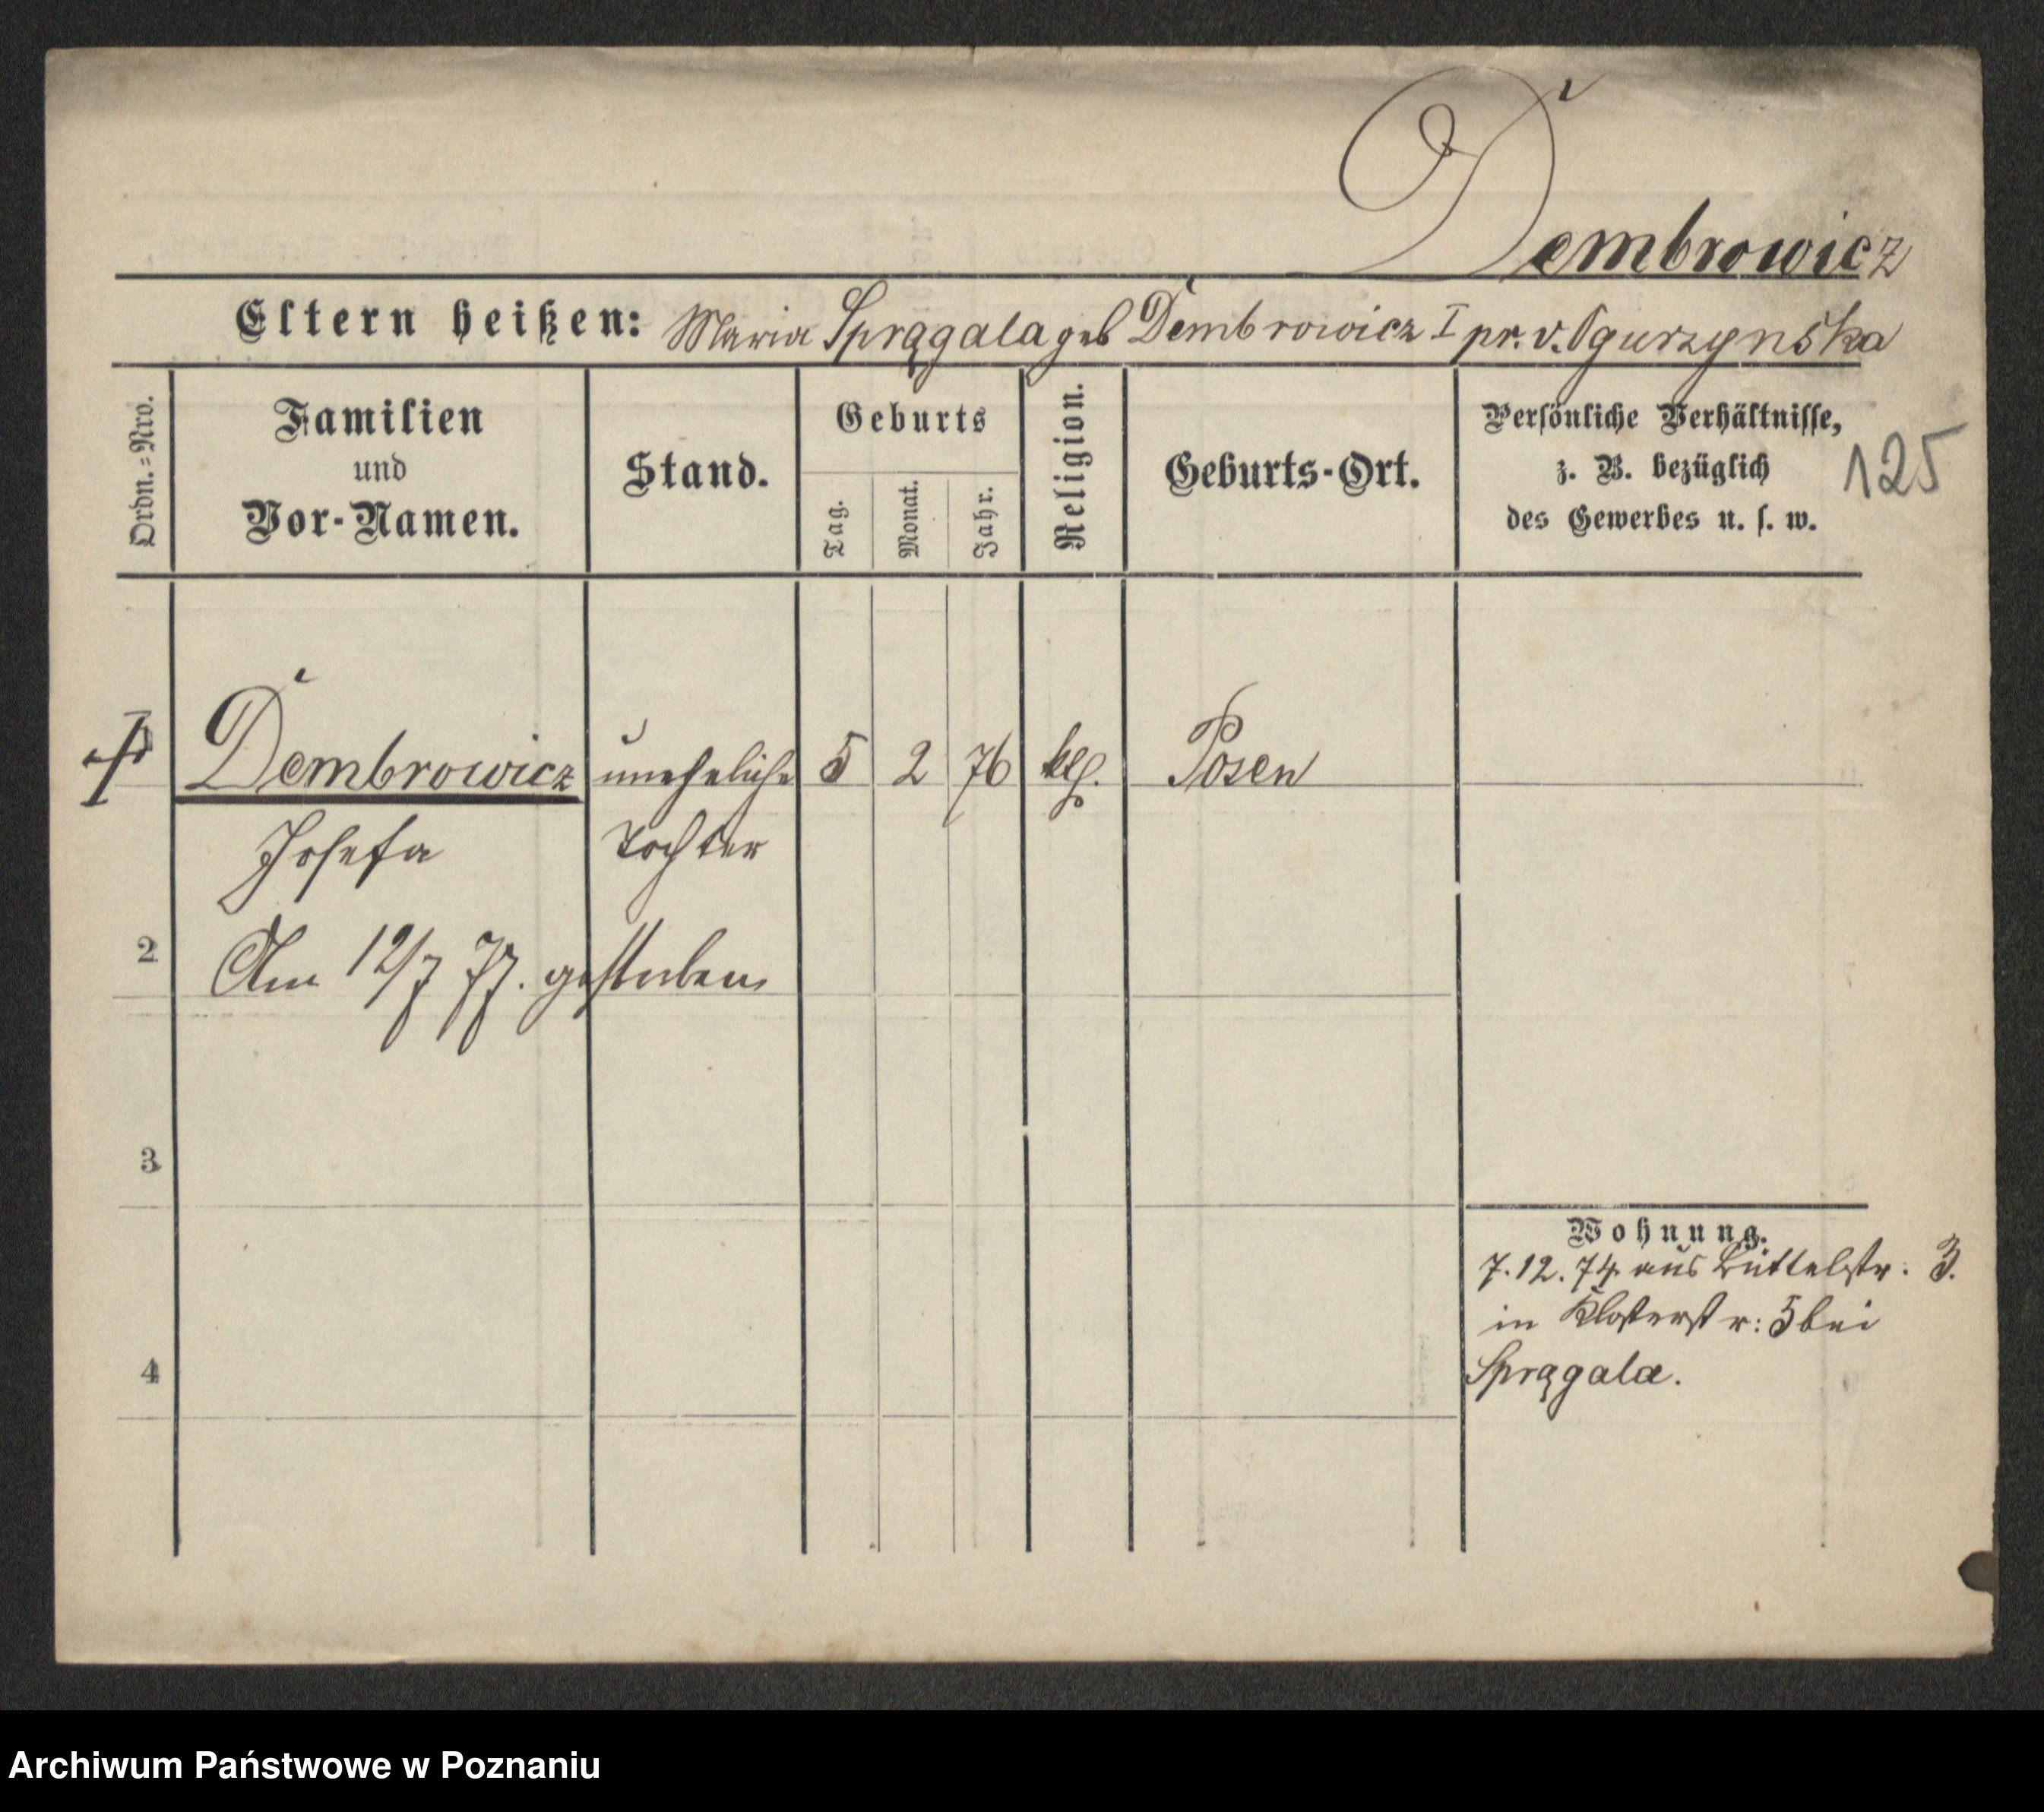 Dembrowicz
Eltern heißen: Maria Sprągala geb Dembrowicz I pr. v. Ogurzynska
Ordn.=Nro.
Familien
und
Vor-Namen.
Stand.
Geburts
Tag.
Monat.
Jahr.
Religion.
Geburts-Ort.
Persönliche Verhältnisse,
z. B. bezüglich
des Gewerbes u. s. w.
125
Dembrowicz uneheliche 5 2 76 kth. Posen
Josefa Tochter
2 Am 12/7 77. gestorben
3
Wohnung.
7.12.74 aus Büttelstr: 3.
in Klosterstr: 5 bei
4 Sprągala.
Archiwum Państwowe w Poznaniu